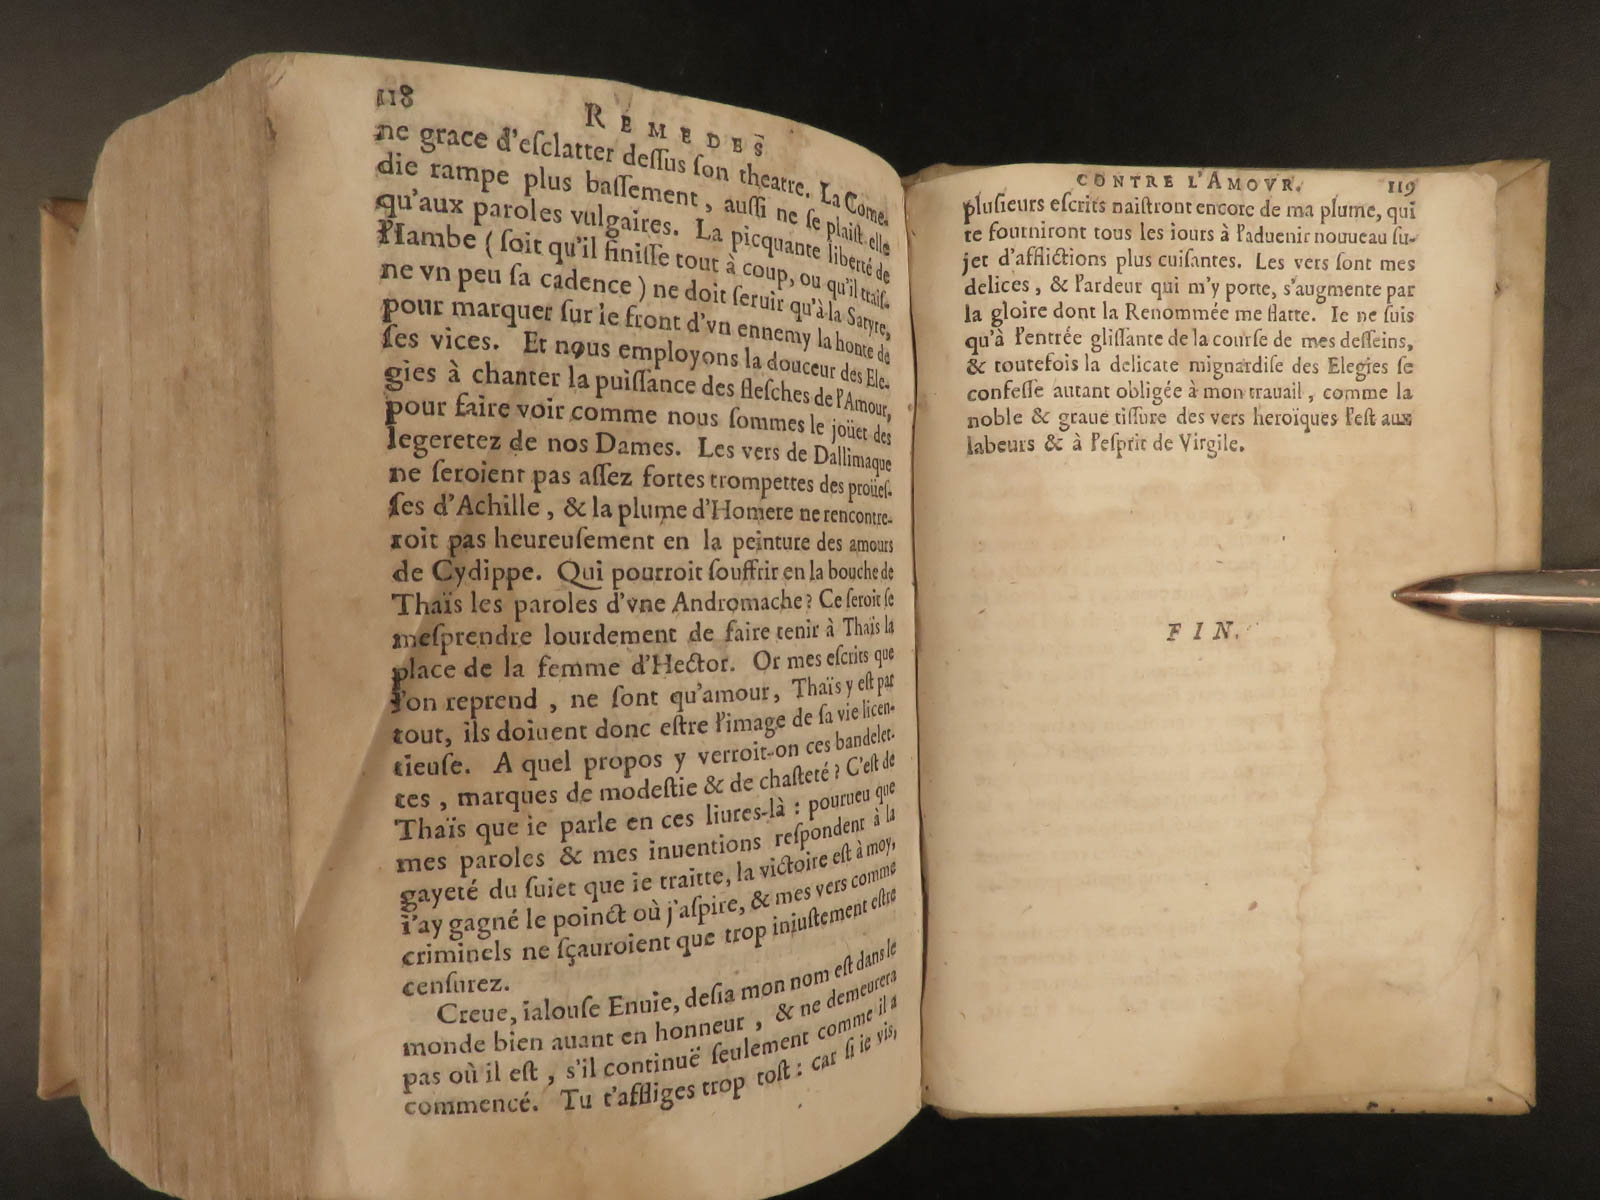 118
REMEDES
ne grace d'eſclatter deſſus ſon theatre. La Come-
die rampe plus baſſement, auſſi ne ſe plaiſt elle
qu'aux paroles vulgaires. La picquante liberté de
l'Iambe (ſoit qu'il finiſſe tout à coup, ou qu'il traiſ-
ne vn peu ſa cadence) ne doit ſeruir qu'à la Satyre,
pour marquer ſur le front d'vn ennemy la honte de
ſes vices. Et nous employons la douceur des Ele-
gies à chanter la puiſſance des fleſches de l'Amour,
pour faire voir comme nous ſommes le joüet des
legeretez de nos Dames. Les vers de Dallimaque
ne ſeroient pas aſſez fortes trompettes des proüeſ-
ſes d'Achille, & la plume d'Homere ne rencontre-
roit pas heureuſement en la peinture des amours
de Cydippe. Qui pourroit ſouffrir en la bouche de
Thaïs les paroles d'vne Andromache? Ce ſeroit ſe
meſprendre lourdement de faire tenir à Thaïs la
place de la femme d'Hector. Or mes eſcrits que
l'on reprend, ne ſont qu'amour, Thaïs y eſt par
tout, ils doiuent donc eſtre l'image de ſa vie licen-
tieuſe. A quel propos y verroit-on ces bandelet-
tes, marques de modeſtie & de chaſteté? C'eſt de
Thaïs que ie parle en ces liures-là: pourueu que
mes paroles & mes inuentions reſpondent à la
gayeté du ſuiet que ie traitte, la victoire eſt à moy,
i'ay gagné le poinct où j'aſpire, & mes vers comme
criminels ne ſçauroient que trop iniuſtement eſtre
cenſurez.
Creue, ialouſe Enuie, deſia mon nom eſt dans le
monde bien auant en honneur, & ne demeurera
pas où il eſt, s'il continuë ſeulement comme il a
commencé. Tu t'affliges trop toſt: car ſi ie vis,
CONTRE L'AMOVR. 119
pluſieurs eſcrits naiſtront encore de ma plume, qui
te fourniront tous les iours à l'aduenir nouueau ſu-
jet d'afflictions plus cuiſantes. Les vers ſont mes
delices, & l'ardeur qui m'y porte, s'augmente par
la gloire dont la Renommée me flatte. Ie ne ſuis
qu'à l'entrée gliſſante de la courſe de mes deſſeins,
& toutefois la delicate mignardiſe des Elegies ſe
confeſſe autant obligée à mon trauail, comme la
noble & graue tiſſure des vers heroïques l'eſt aux
labeurs & à l'eſprit de Virgile.
FIN.